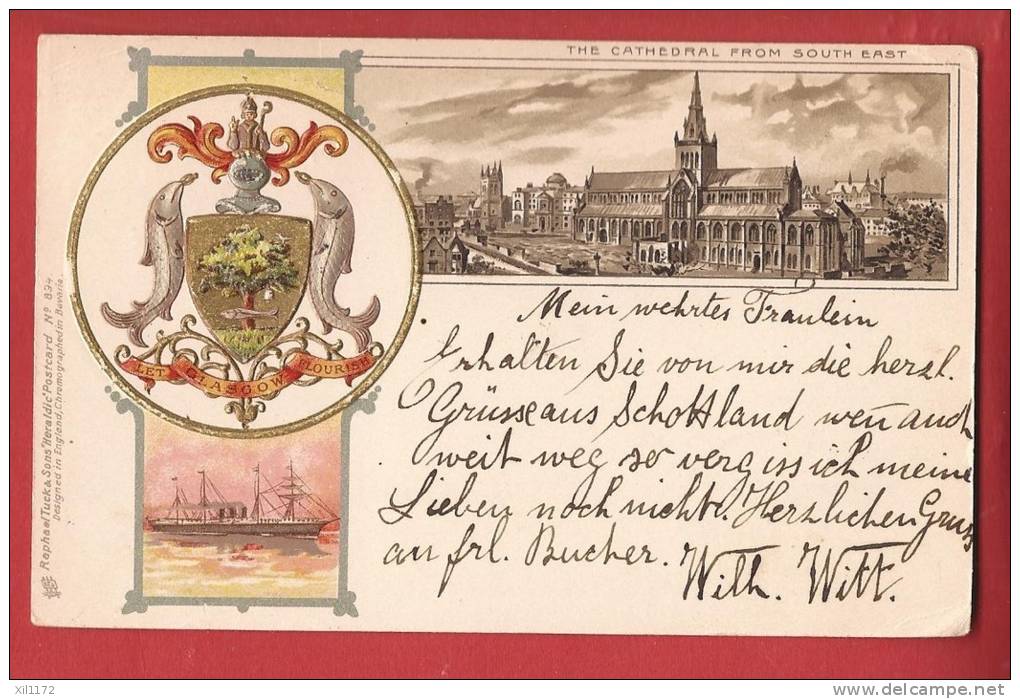 THE CATHEDRAL FROM SOUTH EAST
LET GLASGOW FLOURISH
Raphael Tuck & Sons "Heraldic" Postcard Nº 894
Designed in England, Chromographed in Bavaria
Mein wehrtes Fraulein
Erhalten Sie von mir die herzl.
Grüsse aus Schottland wen auch
weit weg so vergiss ich meine
Lieben noch nicht. Herzlichen Gruss
an frl. Bucher. Wilh. Witt.
xil1172
www.delcampe.net